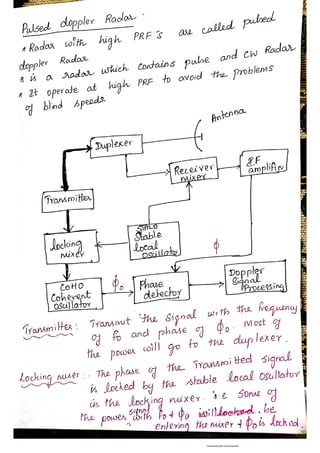 Pulsed doppler Radar :
* Radar with high PRF'S are called pulsed
doppler Radar
* is a radar which contains pulse and CW Radar
* It operate at high PRF to avoid the problems
of blind speeds.
Antenna
Duplexer
Receiver
mixer
IF
amplifier
Transmitter
STALO
Stable
local
oscillator
locking
mixer
ϕ
COHO
Coherent
oscillator
ϕ0
Phase
detector
Doppler
Signal
Processing
Transmitter : Transmit the signal with the frequency
of f0 and phase of ϕ0. Most of
the power will go to the duplexer.
Locking mixer :- The phase of the Transmitted signal
is locked by the stable local oscillator
in the locking mixer. i e some of
the power with signal f0 + ϕ0 be
entering the mixer + ϕ0 is locked.